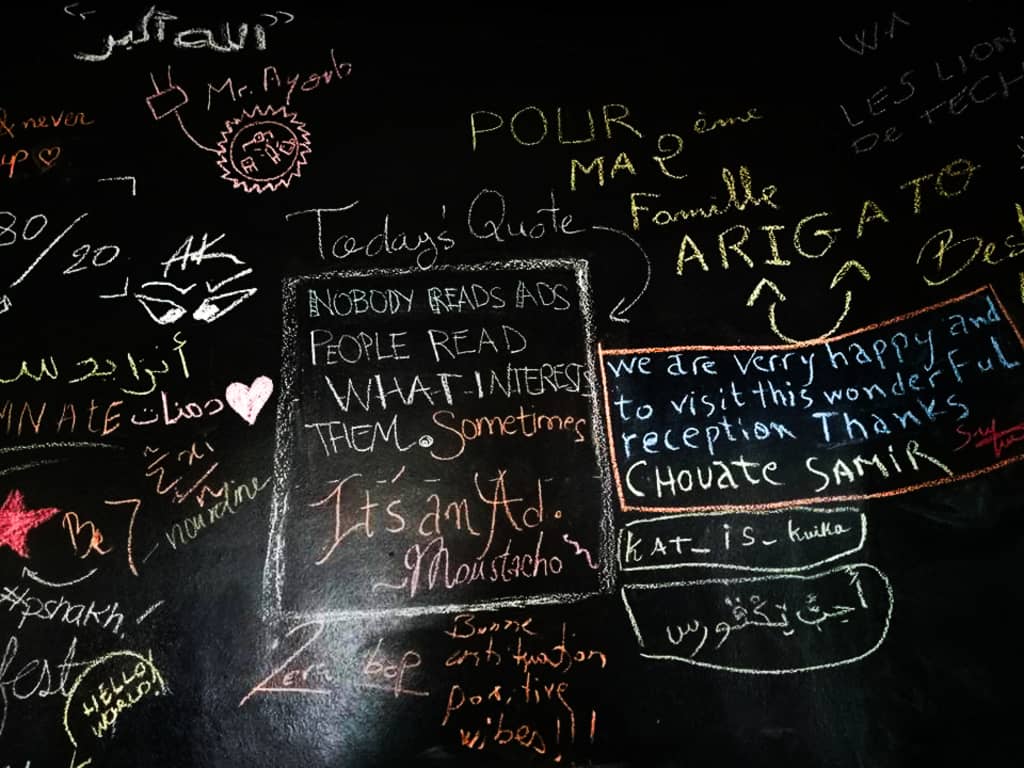 "الله أكبر"
Mr. Ayoub
& never
up
80/20
AK
WA
LES LION
De TECH
POUR
MA 2ème
Famille
ARIGATO
Best
Today's Quote
NOBODY READS ADS
PEOPLE READ
WHAT INTERESTS
THEM. Sometimes
It's an Ad.
Moustacho
we are verry happy and
to visit this wonderFuL
reception Thanks
CHOUATE SAMIR
KAT_is_kuika
Be 7
nourdine
#pshakh
fest
HELLO
WORLD!
Zero bop
Bonne
continuation
positive
vibes!!!